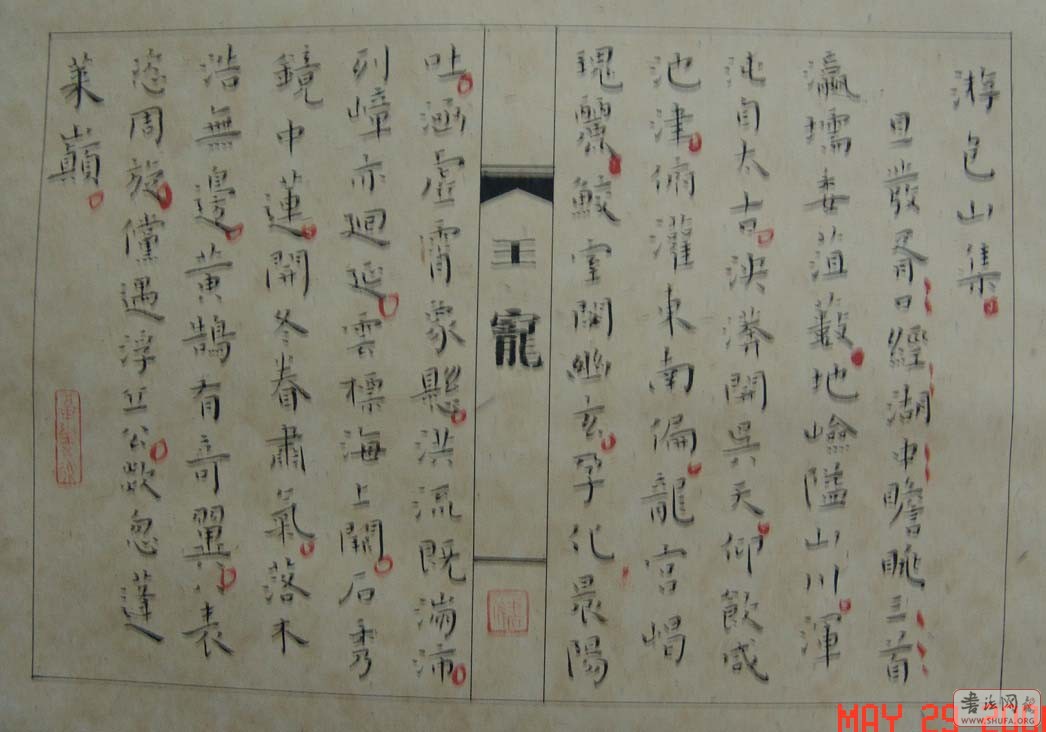 游包山集
旦發胥口經湖中瞻眺三首
瀛壖委菹藪地嶮隘山川渾
沌自太古泱漭開吳天仰飲咸
池津俯灌東南偏龍宮嵑
瑰麗鮫室閟幽玄孕化晨陽
王寵
吐涵虛霄象懸洪流既湍沛
列嶂亦迴延雲標海上闕石秀
鏡中蓮開冬眷肅氣落木
浩無邊黃鵠有奇翼八表
恣周旋儻遇浮丘公欻忽蓬
萊巔
書法网
WWW.SHUFA.ORG
MAY 29 200